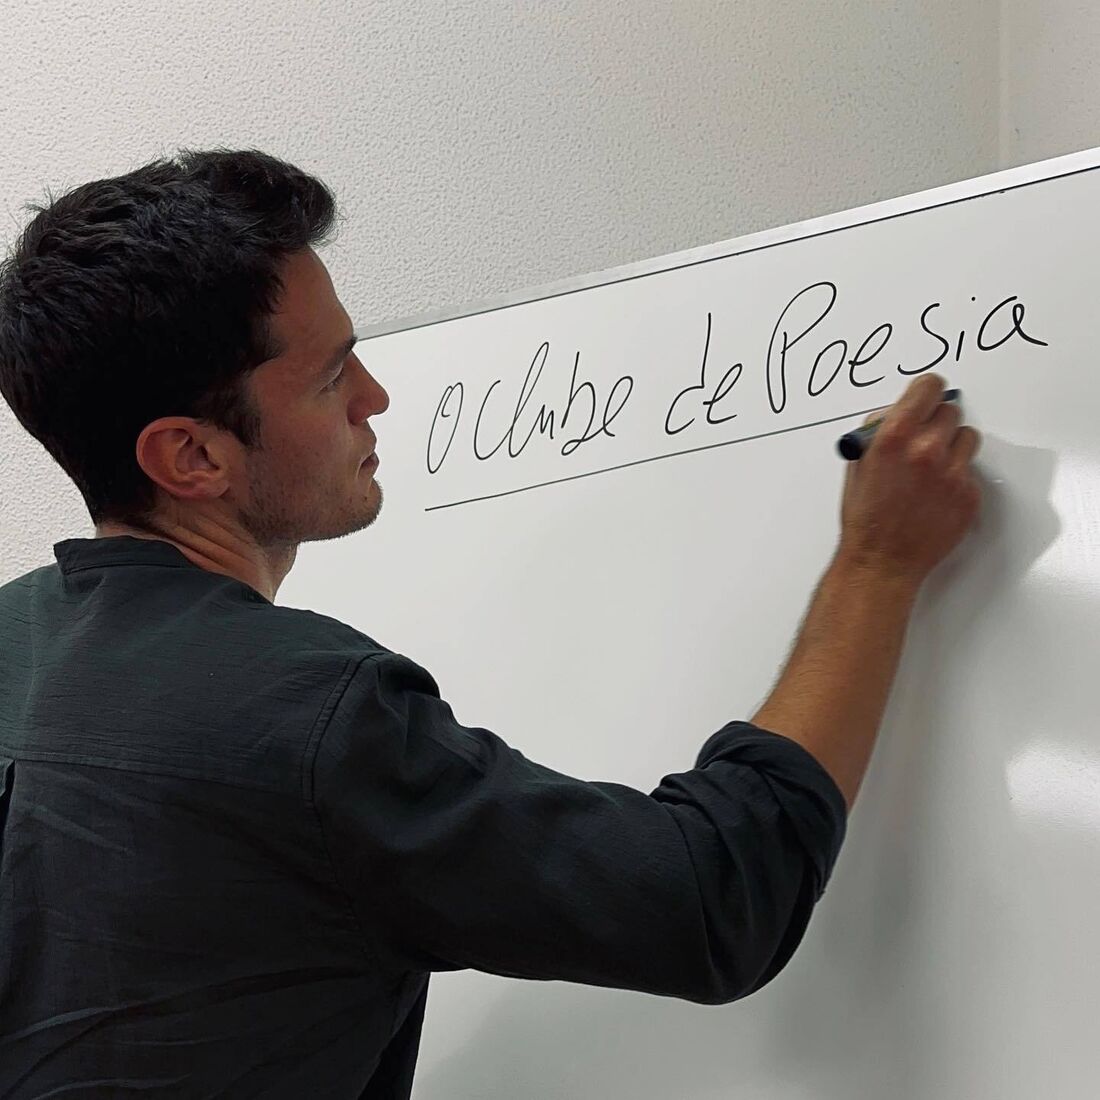 O Clube de Poesia